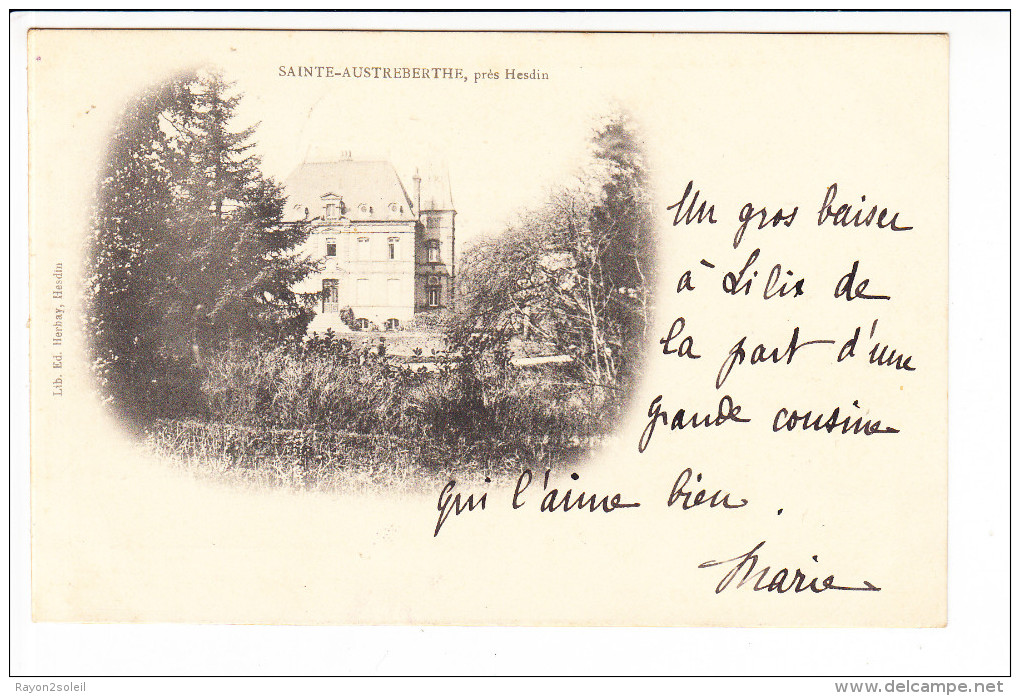 SAINTE-AUSTREBERTHE, près Hesdin
Lib. Ed. Herbay, Hesdin
Un gros baiser
à Lilix de
la part d'une
grande cousine
qui l'aime bien.
Marie
Rayon2soleil
www.delcampe.net